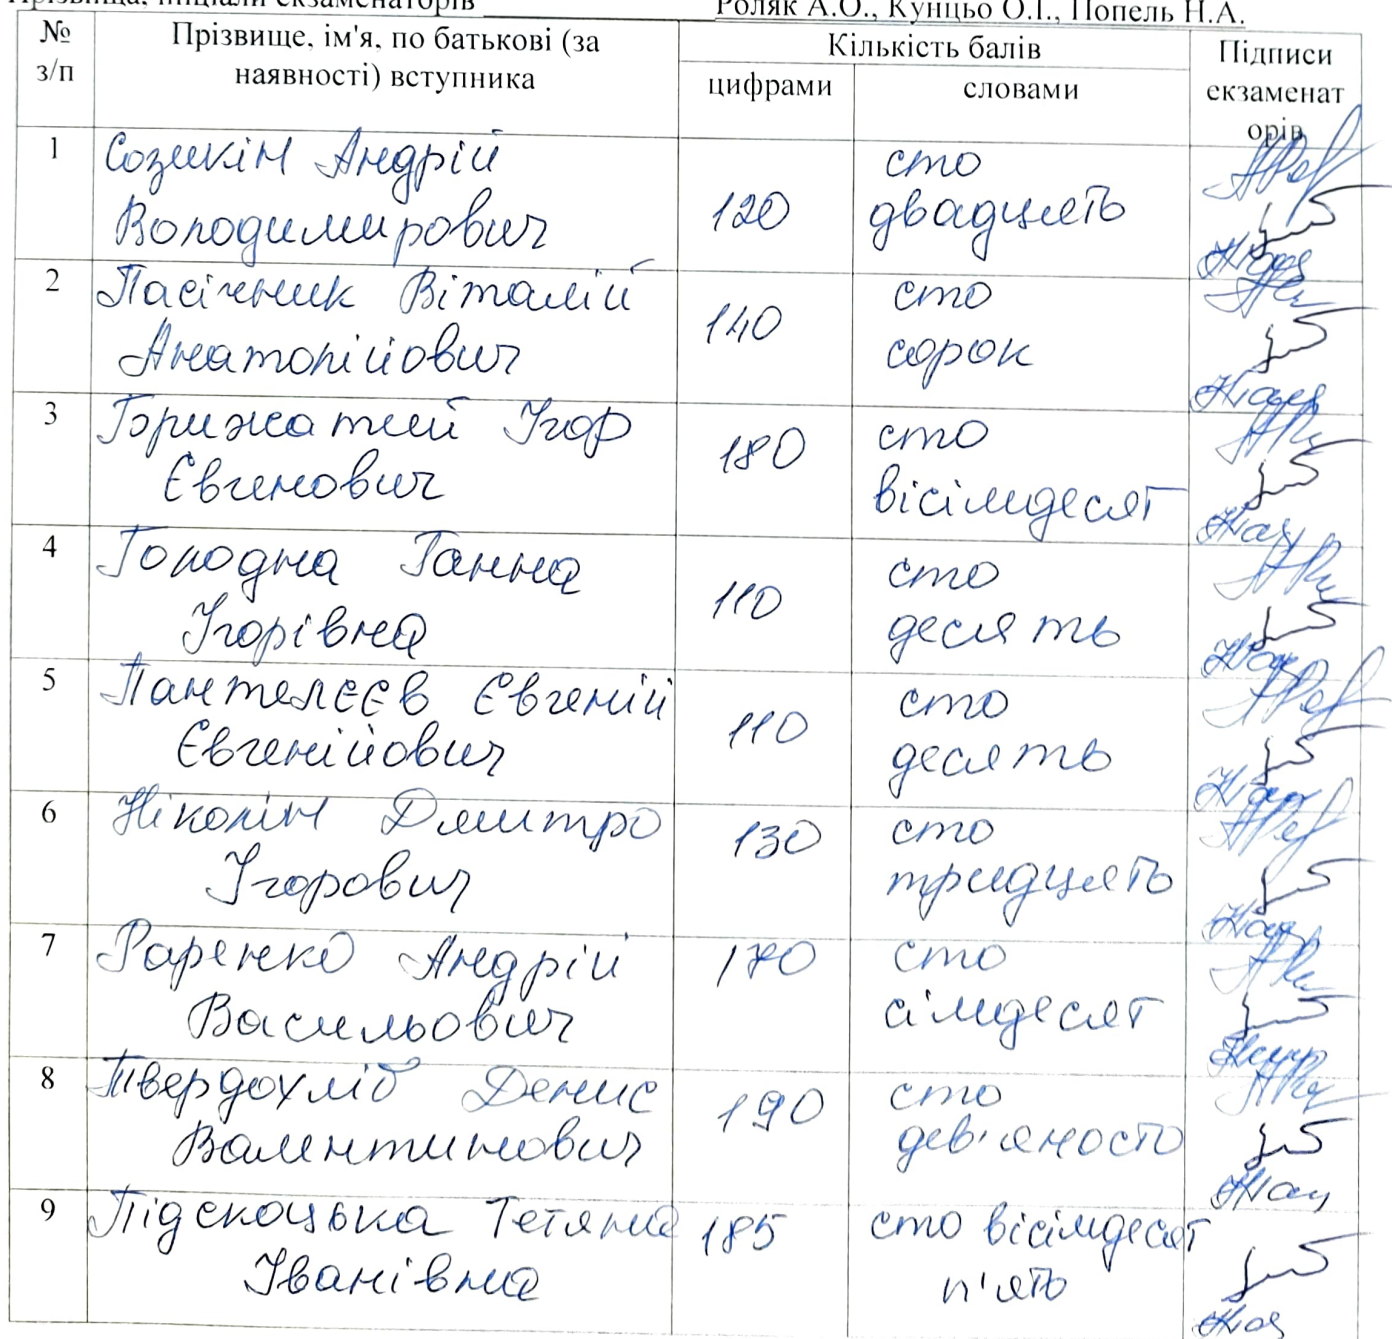 Прізвища, ініціали екзаменаторів Роляк А.О., Кунцьо О.І., Попель Н.А.
№ з/п Прізвище, ім'я, по батькові (за наявності) вступника Кількість балів Підписи екзаменаторів
цифрами словами
1 Созикін Андрій
Володимирович 120 сто
двадцять
2 Пасічник Віталій
Анатолійович 140 сто
сорок
3 Брижатий Ігор
Євгенович 180 сто
вісімдесят
4 Голодна Ганна
Ігорівна 110 сто
десять
5 Пантелєєв Євгеній
Євгенійович 110 сто
десять
6 Ніколін Дмитро
Ігорович 130 сто
тридцять
7 Раренко Андрій
Васильович 170 сто
сімдесят
8 Твердохліб Денис
Валентинович 190 сто
дев'яносто
9 Підскоцька Тетяна
Іванівна 185 сто вісімдесят
п'ять